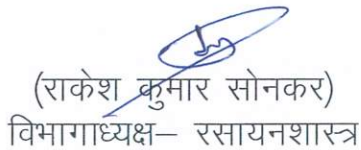 (राकेश कुमार सोनकर)
विभागाध्यक्ष– रसायनशास्त्र